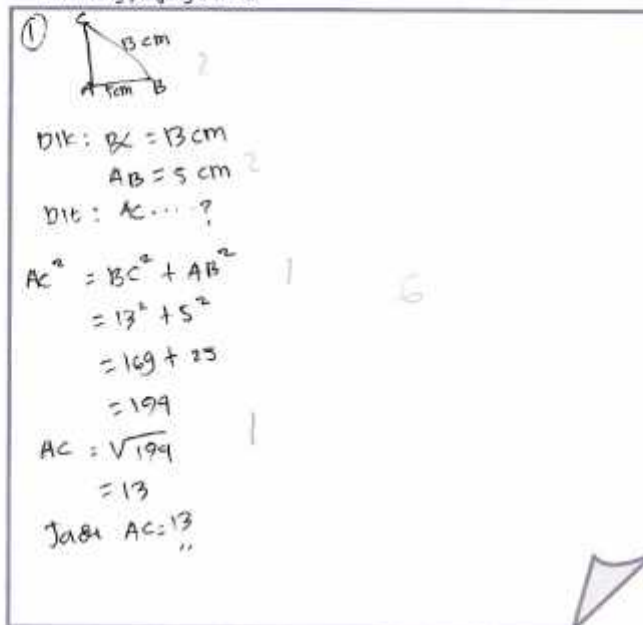 ①
C
13 cm
A 5cm B 2
Dik: BC = 13 cm
AB = 5 cm 2
Dit: AC....?
AC² = BC² + AB² 1
= 13² + 5² 6
= 169 + 25
= 194
AC = √194 1
= 13
Jadi AC = 13 ,,